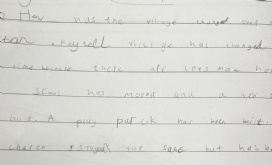 How has the village changed
village has changed
time because there are lots more
Scool has moved and a new
built. A play parck has been built.
stayed the same but has